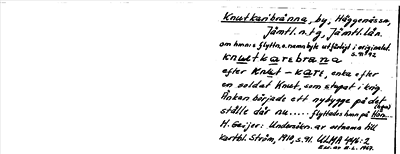 Knutkaribränna, by, Häggenäs sn,
Jämtl. n. tg, Jämtl. län.
om hennes flyttn. o. namnbyte utförligt i originalet.
s. 91-92
knutkarebrana
efter Knut-kari, enka efter
en soldat Knut, som stupat i krig.
Änkan började ett nybygge på det
ställe där nu..... flyttades hon på
H. Geijer: Undersökn. av ortnamn till
kartbl. Ström, 1910, s. 91. ULMA 446:2